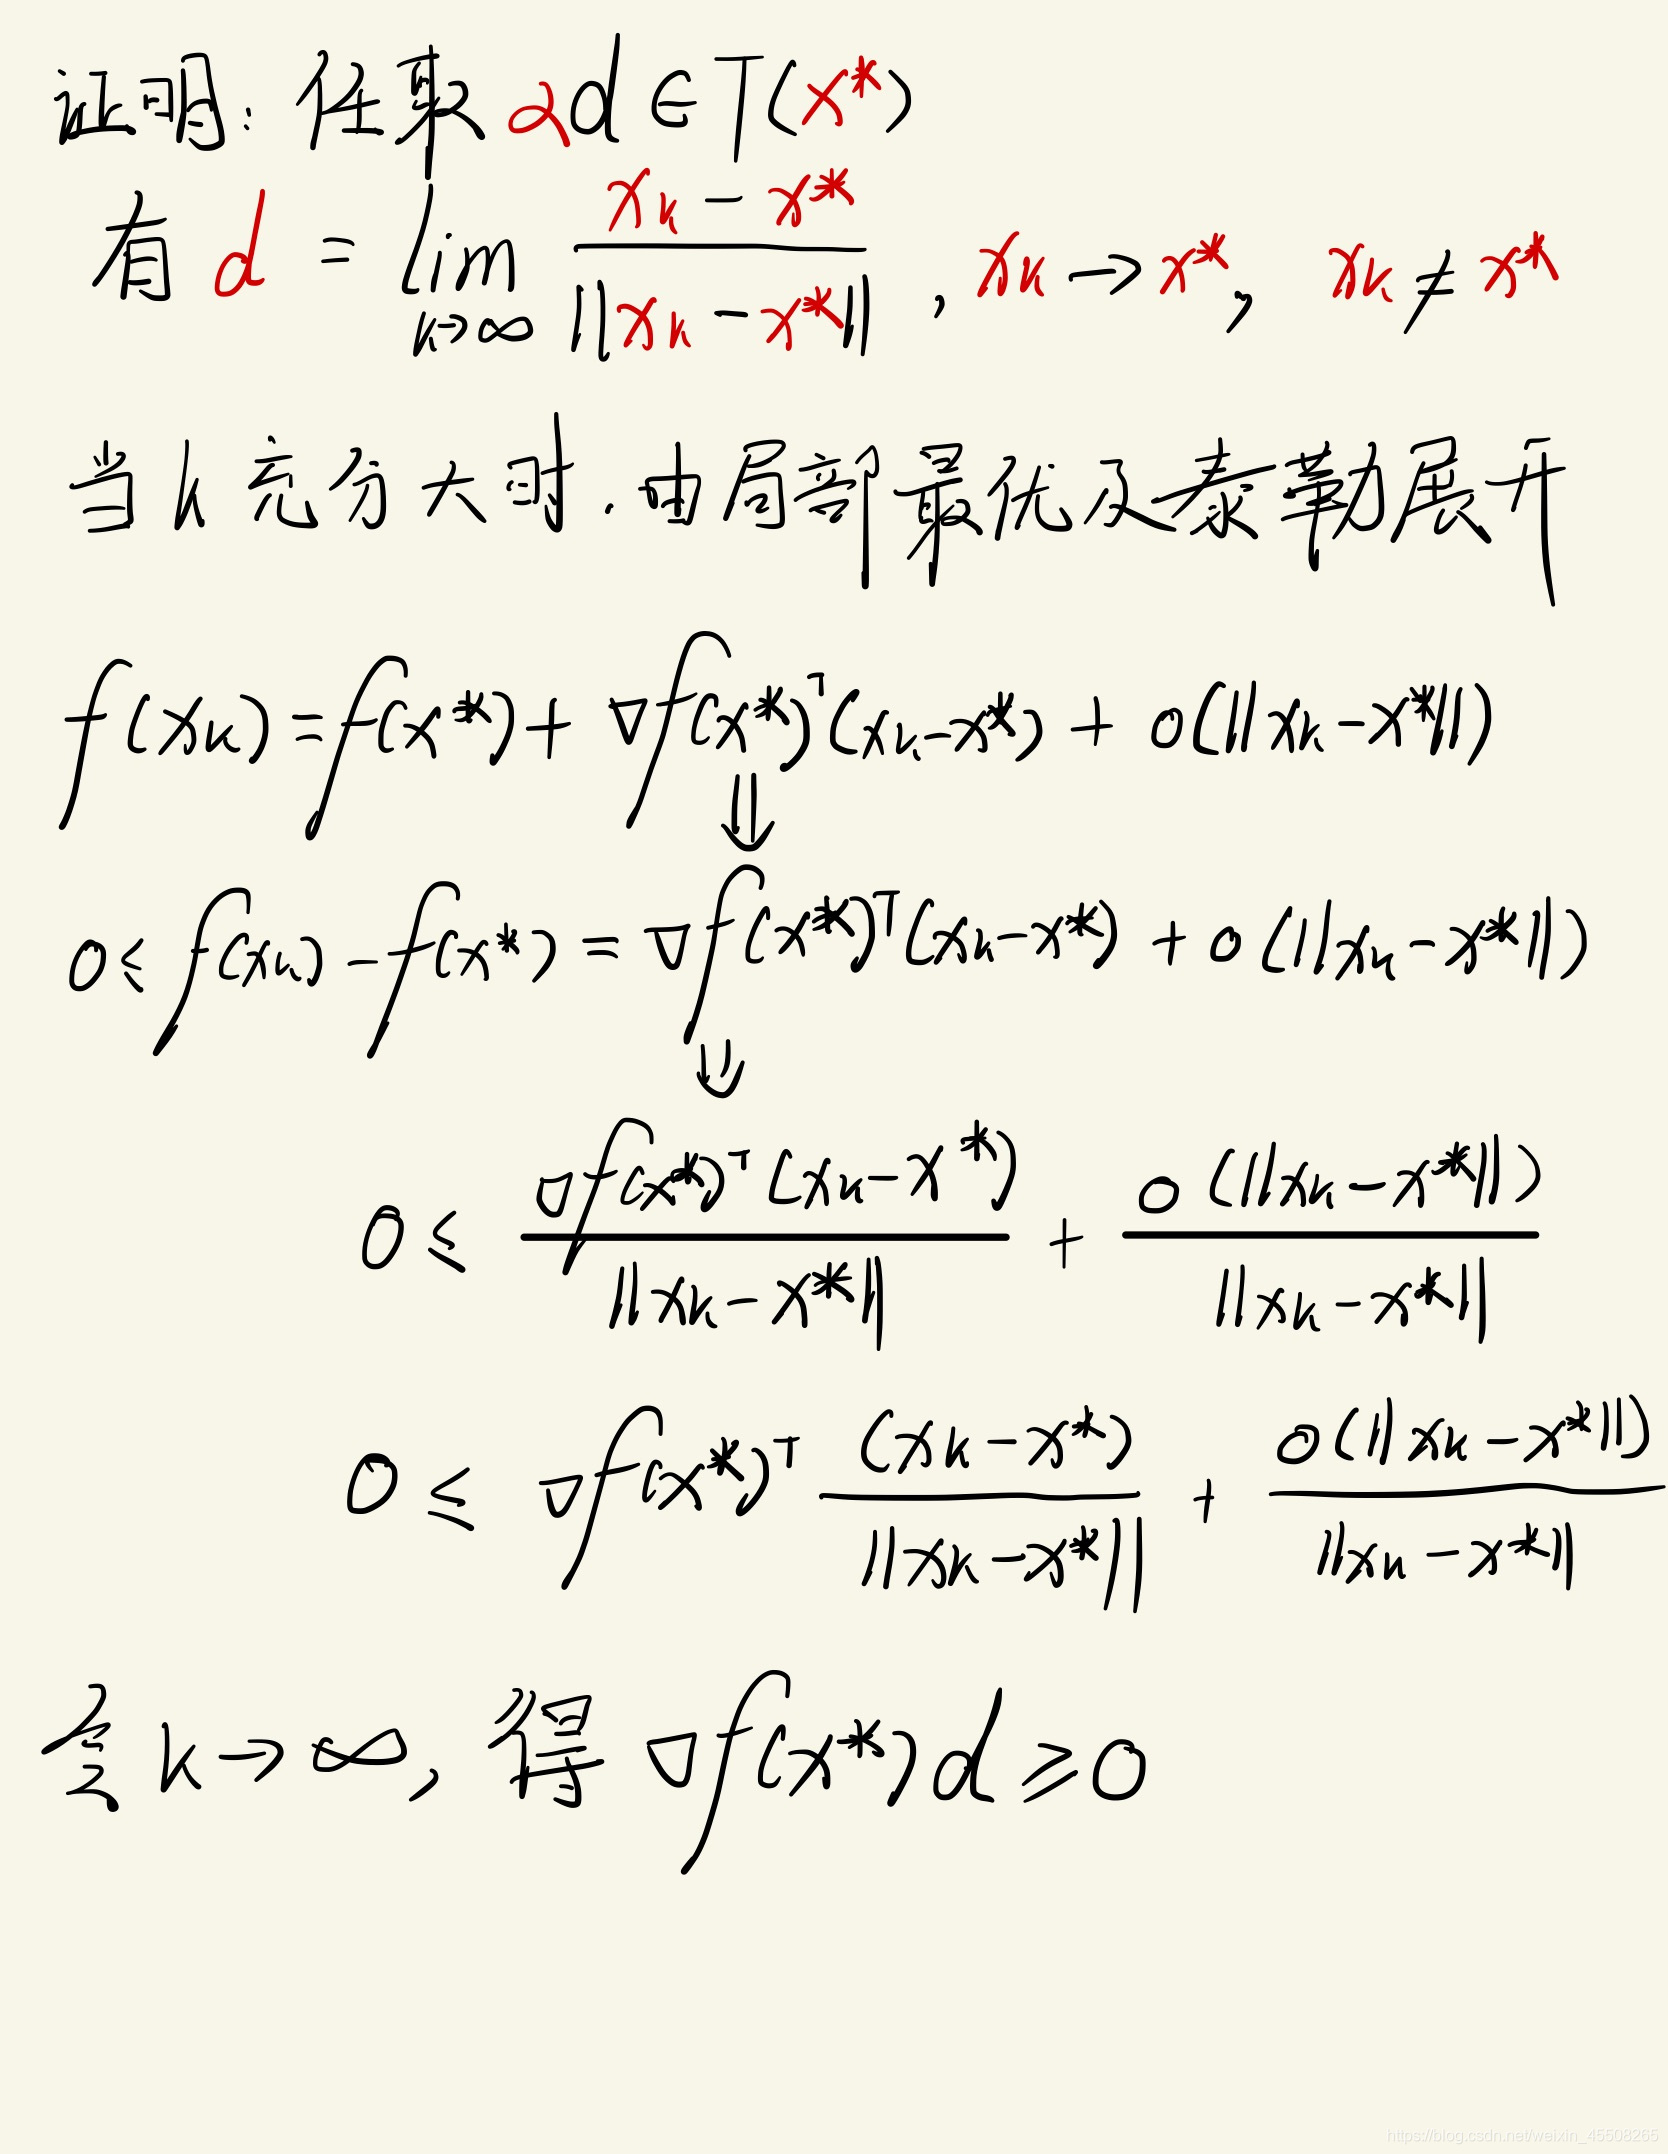 证明: 任取 αd ∈ T(x*)
有 d = lim_{k→∞} (x_k - x*) / ||x_k - x*|| , x_k → x*, x_k ≠ x*
当 k 充分大时. 由局部最优及泰勒展开
f(x_k) = f(x*) + ∇f(x*)^T (x_k - x*) + o(||x_k - x*||)
⇓
0 ≤ f(x_k) - f(x*) = ∇f(x*)^T (x_k - x*) + o(||x_k - x*||)
⇓
0 ≤ ∇f(x*)^T (x_k - x*) / ||x_k - x*|| + o(||x_k - x*||) / ||x_k - x*||
0 ≤ ∇f(x*)^T (x_k - x*) / ||x_k - x*|| + o(||x_k - x*||) / ||x_k - x*||
令 k → ∞, 得 ∇f(x*)d ≥ 0
https://blog.csdn.net/weixin_45508265